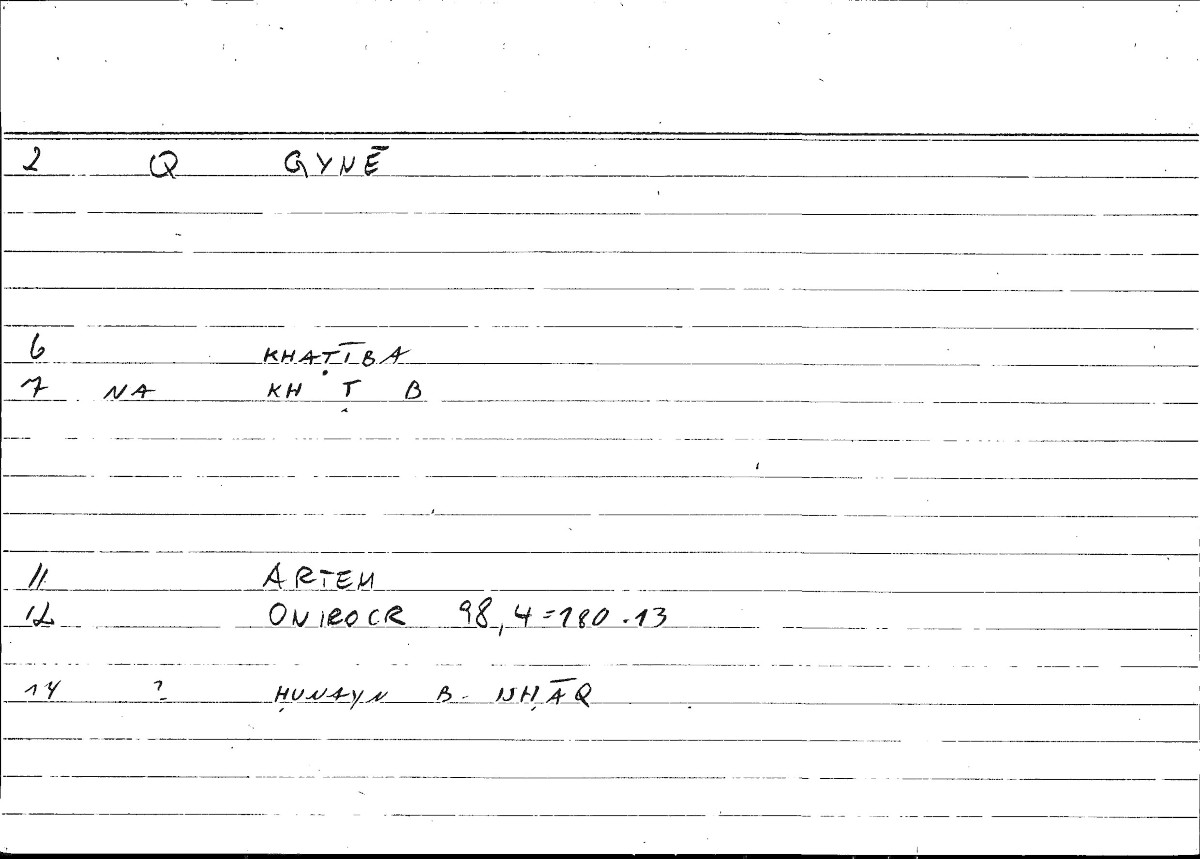 2 Q GYNĒ
6 KHAṬĪBA
7 NA KH Ṭ B
11 ARTEM
12 ONIROCR 98,4=180.13
14 ? ḤUNAYN B. ISḤĀQ